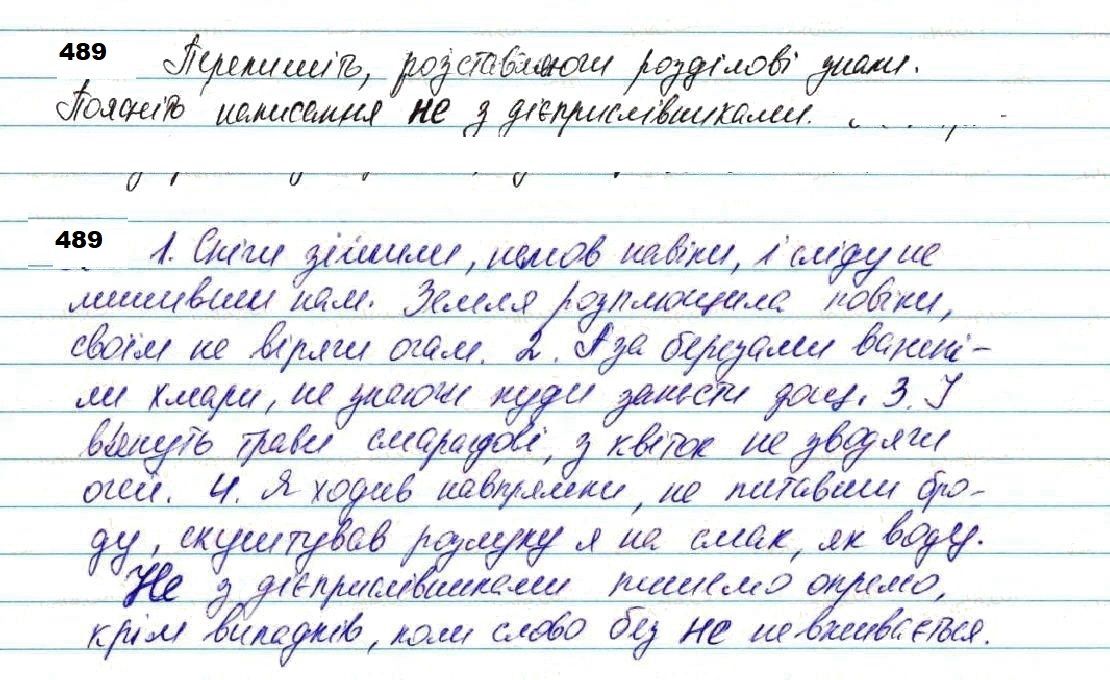 489 Перепишіть, розставляючи розділові знаки.
Поясніть написання не з дієприслівниками.
489 1. Сніги зійшли, немов навіки, і сліду не
лишивши нам. Земля розплющила повіки,
своїм не вірячи очам. 2. А за березами важчі-
ли хмари, не знаючи куди занести дощ. 3. І
в'януть трави смарагдові, з квіток не зводячи
очей. 4. Я ходив навпрямки, не питавши бро-
ду, скуштував розлуку я на смак, як воду.
Не з дієприслівниками пишемо окремо,
крім випадків, коли слово без не не вживається.